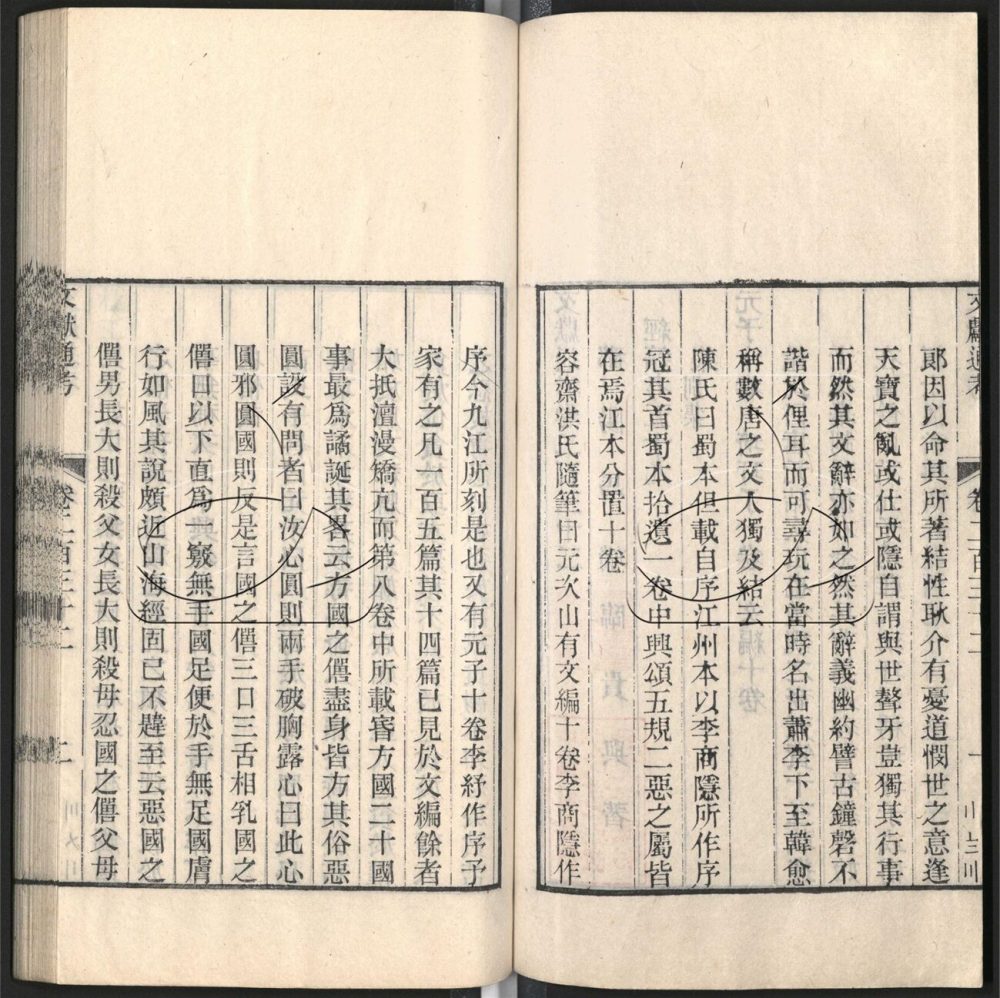 文獻通考 卷二百三十二 一
郞因以命其所著結性耿介有憂道憫世之意逢
天寶之亂或仕或隱自謂與世聱牙豈獨其行事
而然其文辭亦如之然其辭義幽約譬古鐘磬不
諧於俚耳而可尋玩在當時名出蕭李下至韓愈
稱數唐之文人獨及結云
陳氏曰蜀本但載自序江州本以李商隱所作序
冠其首蜀本拾遺一卷中興頌五規二惡之屬皆
在焉江本分置十卷
容齋洪氏隨筆曰元次山有文編十卷李商隱作
序今九江所刻是也又有元子十卷李紓作序予
家有之凡一百五篇其十四篇已見於文編餘者
大抵澶漫矯亢而第八卷中所載窅方國二十國
事最爲譎誕其畧云方國之僭盡身皆方其俗惡
圓設有問者曰汝心圓則兩手破胸露心曰此心
圓邪圓國則反是言國之僭三口三舌相乳國之
僭口以下直爲一竅無手國足便於手無足國膚
行如風其說頗近山海經固已不韙至云惡國之
僭男長大則殺父女長大則殺母忍國之僭父母
文獻通考 卷二百三十二 二